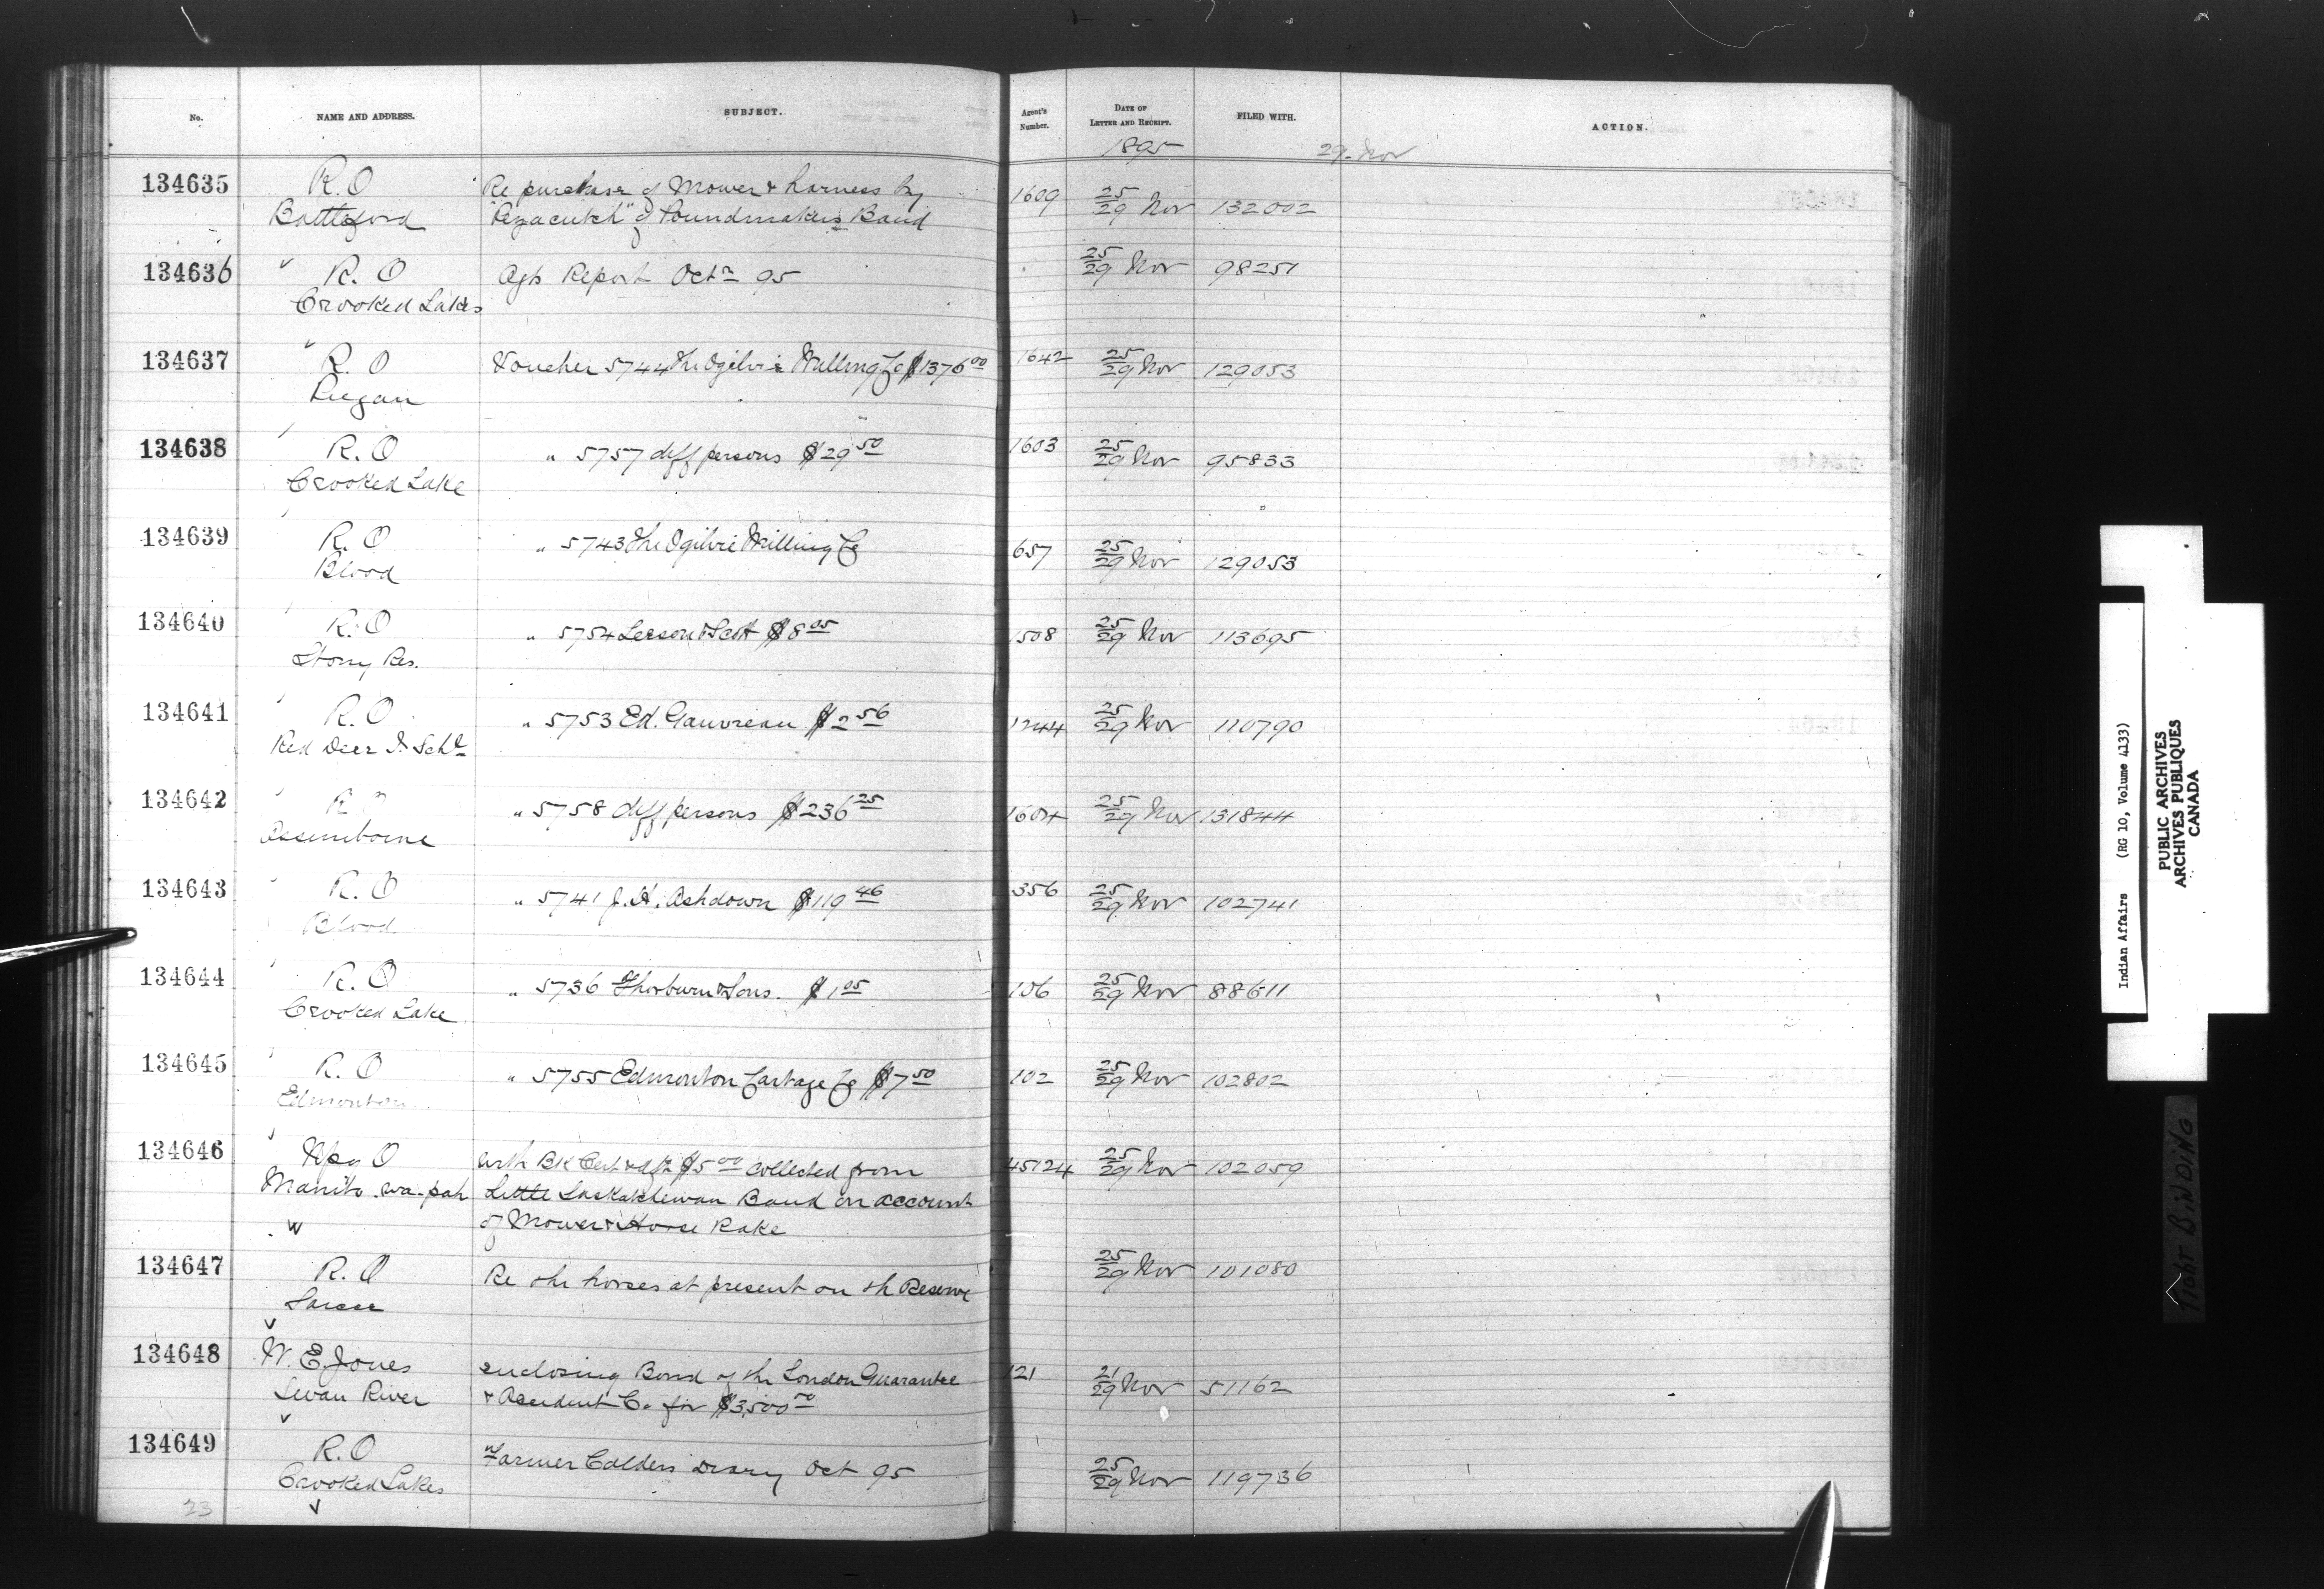 No. NAME AND ADDRESS. SUBJECT. Agent's Number. DATE OF LETTER AND RECEIPT. FILED WITH. ACTION.
1895 29. Nov
134635 R.O Re purchase of Mower & harness by 1609 25/29 Nov 132002
Battleford of Poundmakers Band
134636 R.O Agts Report Octr 95 25/29 Nov 98251
Crooked Lakes
134637 R.O Voucher 5744 The Ogilvie Milling Co $1376 00 1642 25/29 Nov 129053
Piegan
134638 R.O " 5757 diff persons $29 50 1603 25/29 Nov 95833
Crooked Lake
134639 R.O " 5743 The Ogilvie Milling Co 657 25/29 Nov 129053
Blood
134640 R.O " 5754 Leeson & Scott $8 05 1508 25/29 Nov 113695
Stony Res.
134641 R.O " 5753 Ed. Gauvreau $2 56 1244 25/29 Nov 110790
Red Deer I. Schl
134642 R.O " 5758 diff persons $236 25 1604 25/29 Nov 131844
Assiniboine
134643 R.O " 5741 J.H. Ashdown $119 46 356 25/29 Nov 102741
Blood
134644 R.O " 5736 Thorburn & Sons. $1 05 106 25/29 Nov 88611
Crooked Lake
134645 R.O " 5755 Edmonton Cartage Co $7 50 102 25/29 Nov 102802
Edmonton
134646 Wpg O with Bk Cert & dft $5 00 collected from 45124 25/29 Nov 102059
Manito-wa-pah Little Saskatchewan Band on account
of Mower & Horse Rake
134647 R.O Re the horses at present on th Reserve 25/29 Nov 101080
Sarcee
134648 W. E. Jones enclosing Bond of the London Guarantee 121 21/29 Nov 51162
Swan River & Accident Co for $3,500 00
134649 R.O Farmer Calders Diary Oct 95 25/29 Nov 119736
Crooked Lakes
23
Indian Affairs (RG 10, Volume 4133)
PUBLIC ARCHIVES
ARCHIVES PUBLIQUES
CANADA
TIGHT BINDING